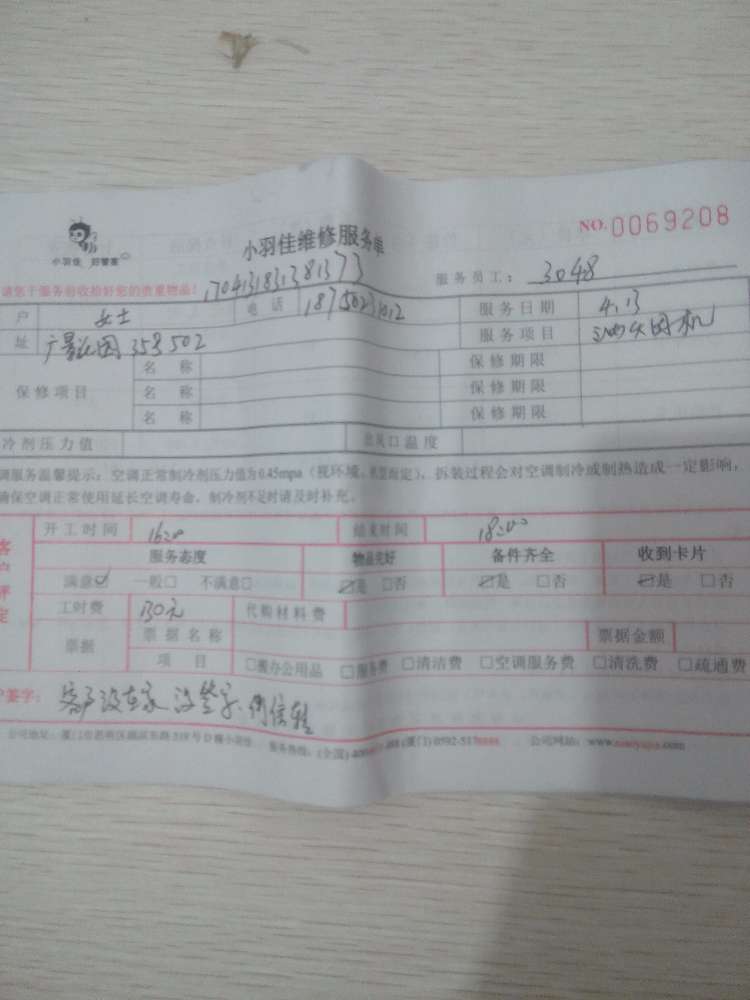 小羽佳 好管家
小羽佳维修服务单
NO.0069208
请您于服务前收拾好您的贵重物品!
服务员工: 3048
户 女士 电话 服务日期 4.13
址 353 502 服务项目
保修项目 名称 保修期限
名称 保修期限
名称 保修期限
冷剂压力值 出风口温度
调服务温馨提示: 空调正常制冷剂压力值为0.45mpa (视环境、机型而定), 拆装过程会对空调制冷或制热造成一定影响,
确保空调正常使用延长空调寿命, 制冷剂不足时请及时补充。
客户评定
开工时间 结束时间 18:00
服务态度 物品完好 备件齐全 收到卡片
满意☑ 一般□ 不满意□ ☑是 □否 ☑是 □否 ☑是 □否
工时费 130元 代购材料费
票据 票据名称 票据金额
项目 □搬办公用品 □服务费 □清洁费 □空调服务费 □清洗费 □疏通费
户签字: 客户没在家 没签字
公司地址: 厦门市思明区 服务热线: (全国) (厦门) 公司网站: www.xiaoyujia.com